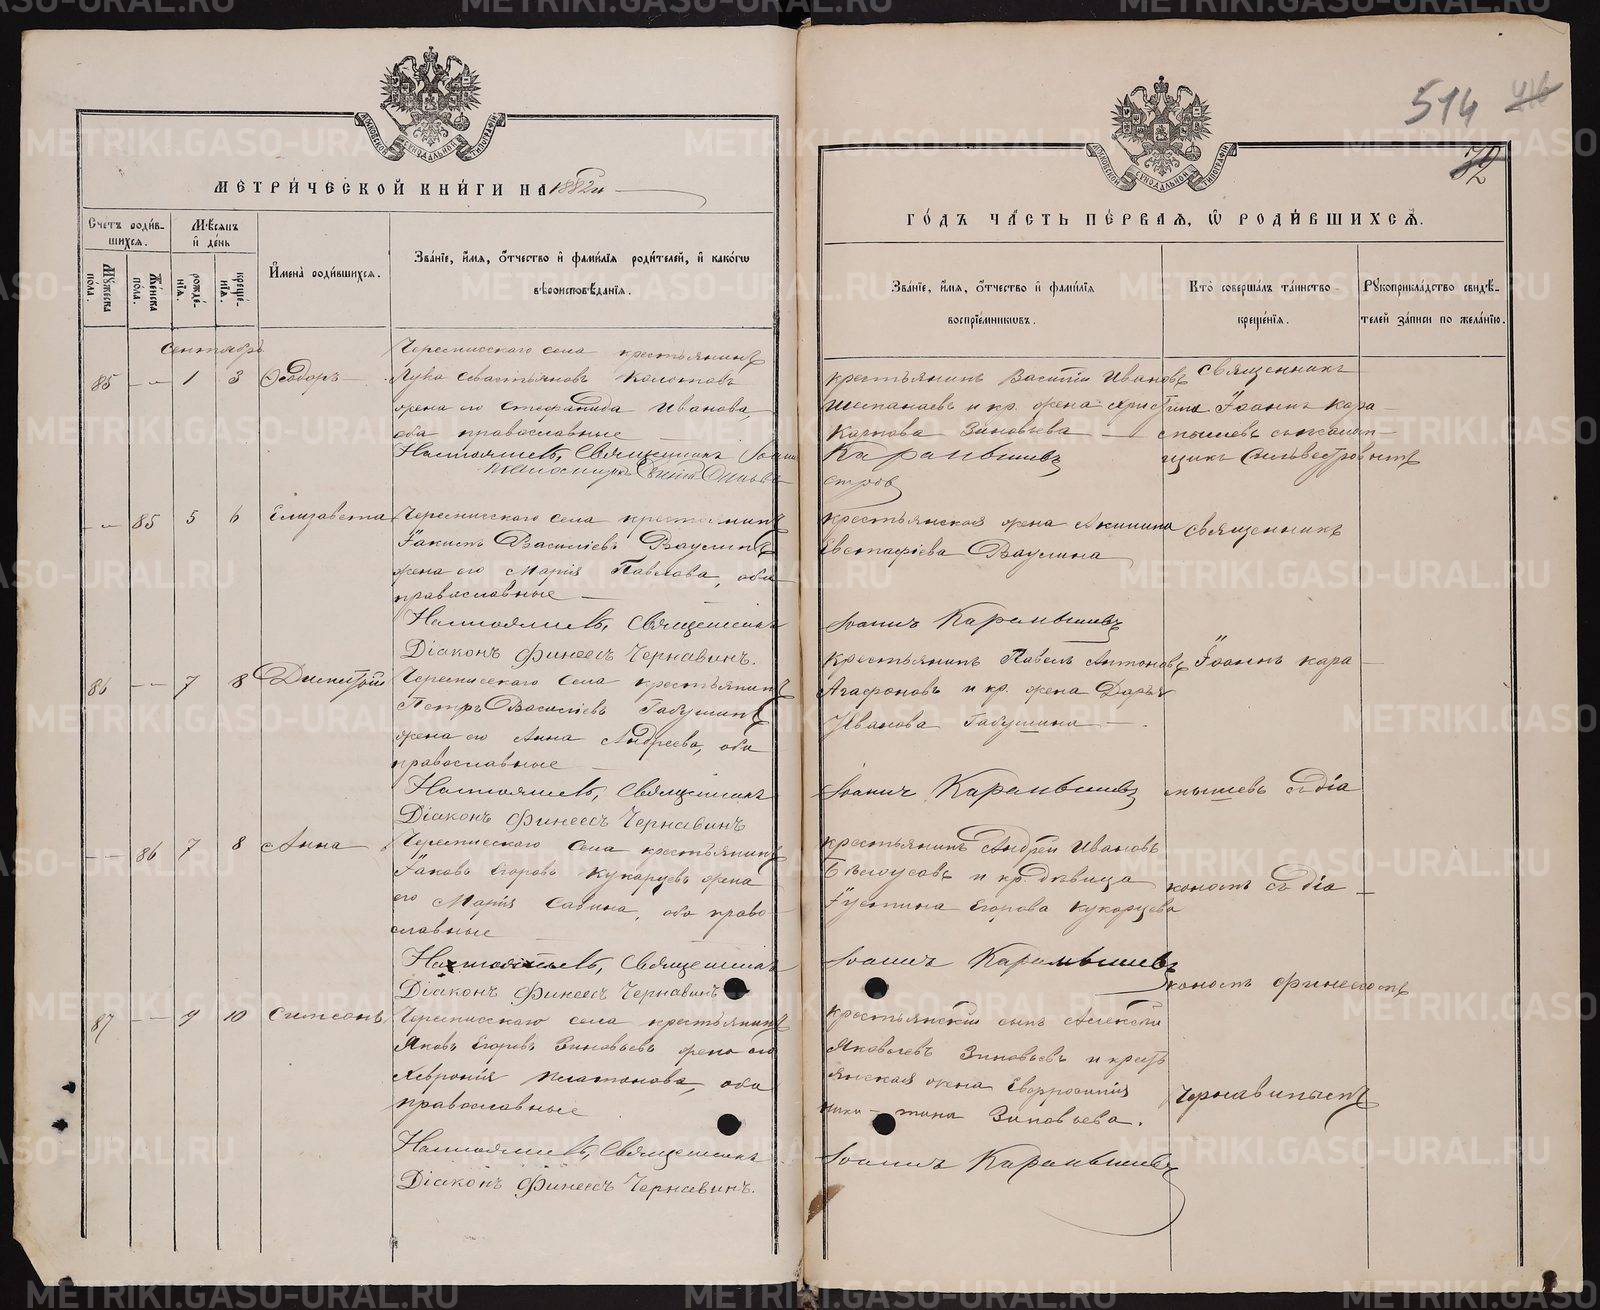 МЕТРИ́ЧЕСКОЙ КНИ́ГИ НА 1882й
Счетъ роди́в-
шихся.
Мѣсяцъ
и де́нь
Мꙋжеска
пола.
Женска
по́ла.
рожде́-
нїя.
креще́-
нїя.
И҆мена̀ роди́вшихся.
Зва́нїе, и҆́мя, ѻ҆́тчество и҆ фами́лїѧ роди́телей, и҆ како́гѡ
вѣроисповѣ́данїя.
Сентябрь
85 — 1 3 Ѳеодоръ
Черемисскаго села крестьянинъ
Лука Савастьяновъ
жена его Стефанида Иванова,
оба православные
Настоятель, Священникъ Іоаннъ
85 5 6 Елизавета
Черемисскаго села крестьянинъ
Іакимъ Василіевъ Ваулинъ
жена его Марія Павлова, оба
православные
Настоятель, Священникъ
Діаконъ Финеесъ Чернавинъ.
86 — 7 8 Димитрій
Черемисскаго села крестьянинъ
Петръ Василіевъ Габушинъ
жена его Анна Андреева, оба
православные
Настоятель, Священникъ
Діаконъ Финеесъ Чернавинъ
— 86 7 8 Анна
Черемисскаго села крестьянинъ
Іаковъ Егоровъ Кукарцевъ жена
его Марія Савина, оба право-
славные
Настоятель, Священникъ
Діаконъ Финеесъ Чернавинъ
87 — 9 10 Симеонъ
Черемисскаго села крестьянинъ
Яковъ Егоровъ Зиновьевъ жена его
Хеврониѧ Платонова, оба
православные
Настоятель, Священникъ
Діаконъ Финеесъ Чернавинъ.
514
72
ГО́ДЪ ЧА́СТЬ ПЕ́РВАЯ, Ѡ҆ РОДИ́ВШИХСЯ.
Зва́нїе, и҆́мя, ѻ҆́тчество и҆ фами́лїѧ
воспрїе́мникѡвъ.
Кто̀ соверша́лъ та́инство
креще́нїя.
Рꙋкоприкла́дство свидѣ́-
телей за́писи по жела́нїю.
крестьянинъ Василій Ивановъ
и кр. жена Христина
Зиновьева
Карамышевъ
Священникъ
Іоаннъ Кара-
мышевъ
крестьянская жена Акилина
Евстафіева Ваулина
Іоаннъ Карамышевъ
Священникъ
крестьянинъ Павелъ Антоновъ
Агафоновъ и кр. жена Дарья
Иванова Габушина —.
Іоаннъ Карамышевъ
Іоаннъ Кара —
мышевъ съ діа
крестьянинъ Андрей Ивановъ
Бѣлоусовъ и кр. дѣвица
Іустина Егорова Кукарцева
Іоаннъ Карамышевъ
кономъ съ діа —
кономъ Финеесомъ
крестьянскій сынъ Алексѣй
Яковлевъ Зиновьевъ и кресть
янская жена Евфросинія
Зиновьева.
Іоаннъ Карамышевъ
Чернавинымъ
METRIKI.GASO-URAL.RU